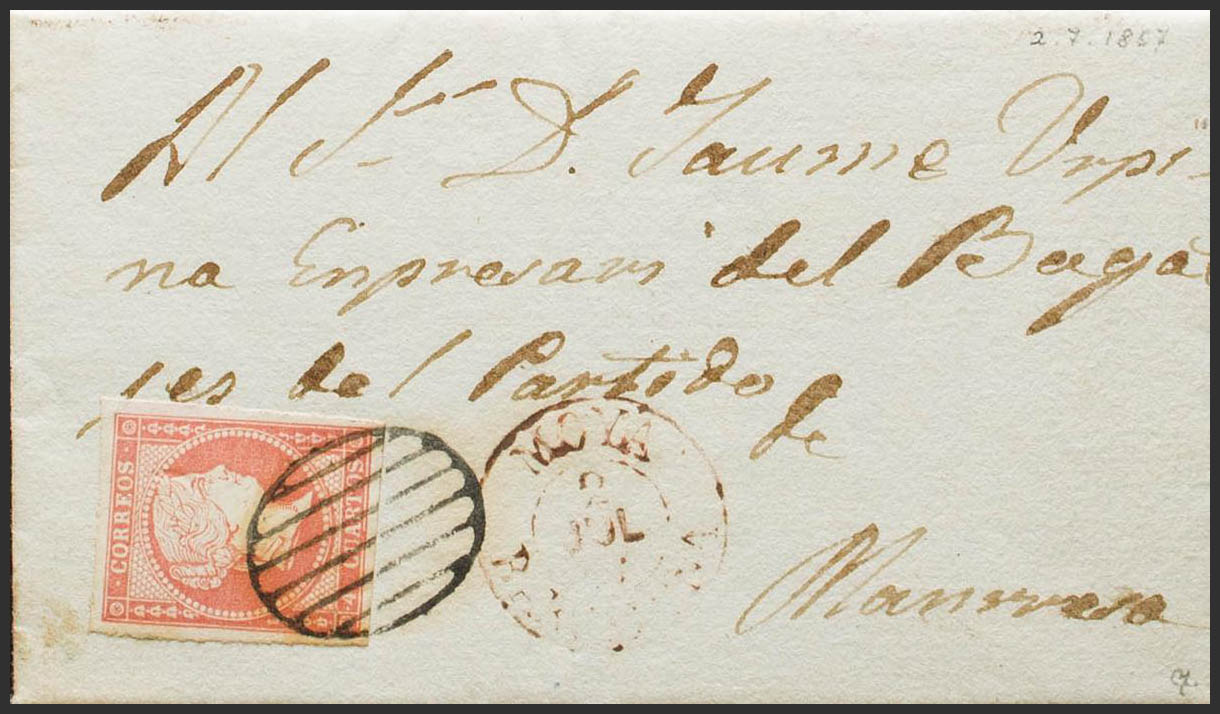 2.7.1857
Al Sr D. Jaume Urpi-
na Enpresari del Bagà
jes del Partido de
Manrresa
CORREOS
CUARTOS
MOYA
2
JUL
7.